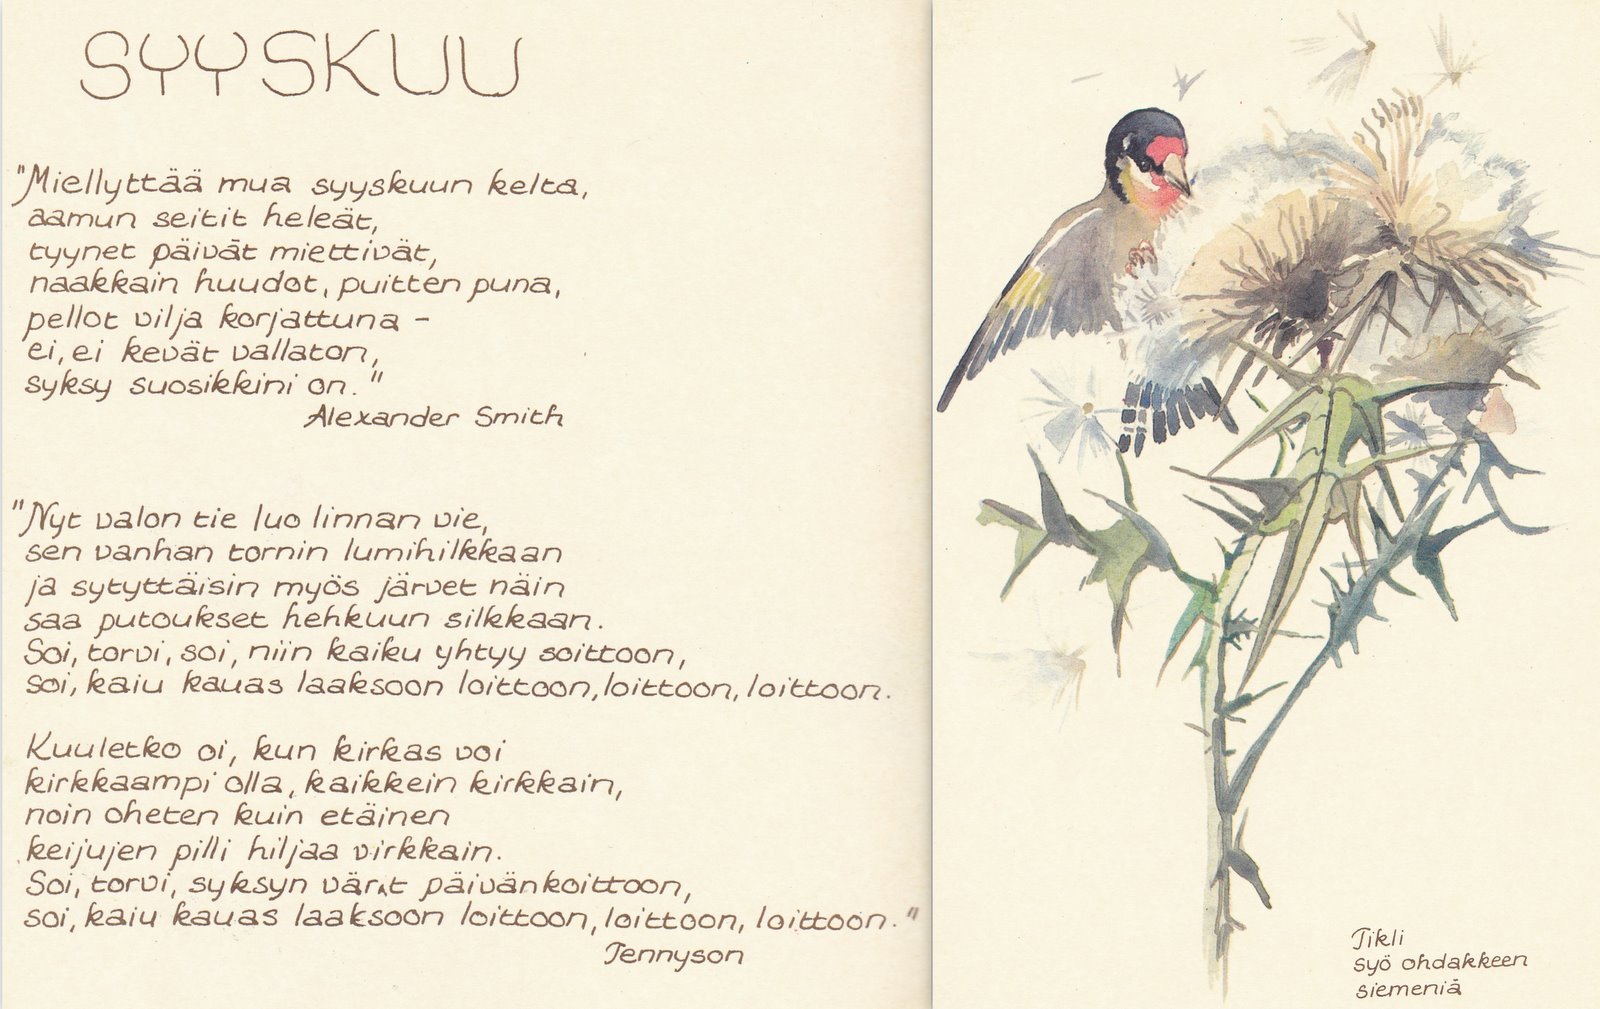 SYYSKUU
"Miellyttää mua syyskuun kelta,
aamun seitit heleät,
tyynet päivät miettivät,
naakkain huudot, puitten puna,
pellot vilja korjattuna -
ei, ei kevät vallaton,
syksy suosikkini on."
Alexander Smith
"Nyt valon tie luo linnan vie,
sen vanhan tornin lumihilkkaan
ja sytyttäisin myös järvet näin
saa putoukset hehkuun silkkaan.
Soi, torvi, soi, niin kaiku yhtyy soittoon,
soi, kaiu kauas laaksoon loittoon, loittoon, loittoon.
Kuuletko oi, kun kirkas voi
kirkkaampi olla, kaikkein kirkkain,
noin oheten kuin etäinen
keijujen pilli hiljaa virkkain.
Soi, torvi, syksyn värit päivänkoittoon,
soi, kaiu kauas laaksoon loittoon, loittoon, loittoon."
Tennyson
Tikli
syö ohdakkeen
siemeniä